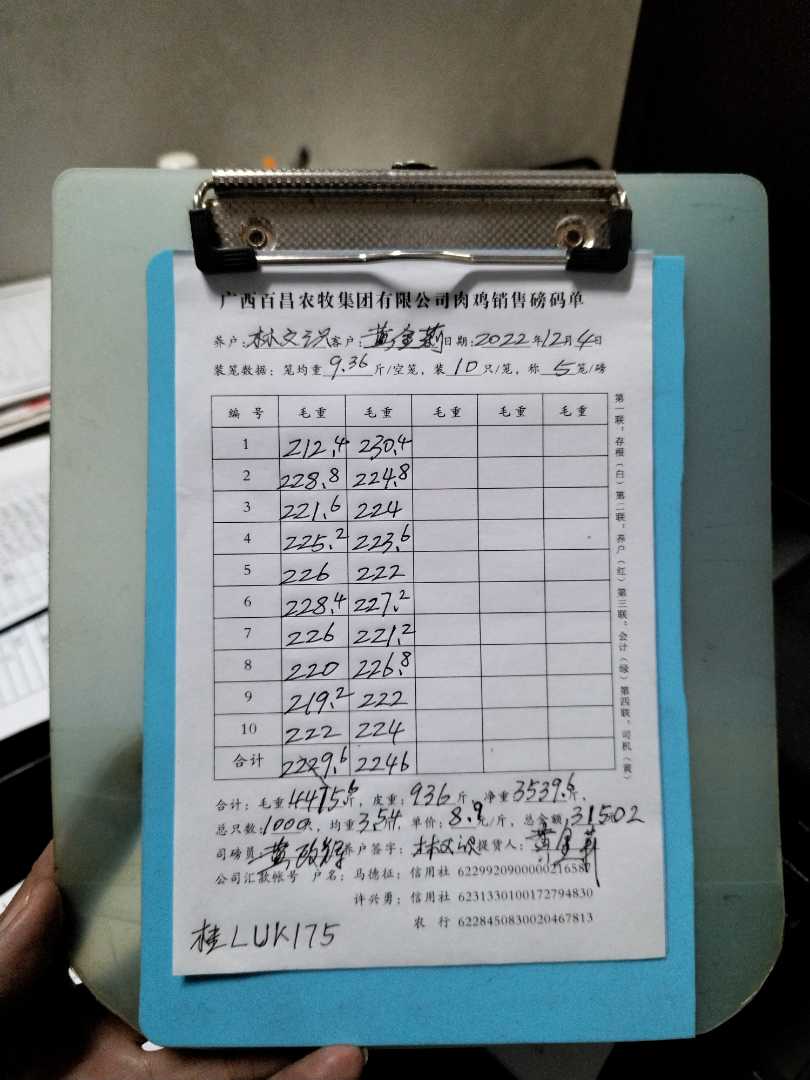 广西百昌农牧集团有限公司肉鸡销售磅码单
养户:林文识 客户:黄金莉 日期:2022年12月4日
装笼数据:笼均重9.36斤/空笼,装10只/笼,称5笼/磅
编号 毛重 毛重 毛重 毛重 毛重
1 212.4 230.4
2 228.8 224.8
3 221.6 224
4 225.2 223.6
5 226 222
6 228.4 227.2
7 226 221.2
8 220 226.8
9 219.2 222
10 222 224
合计 2229.6 2246
合计:毛重4475.6斤,皮重:936斤,净重3539.6斤.
总只数:1000只,均重3.54斤.单价:8.9元/斤,总金额:31502
司磅员:黄 养户签字:林文识 提货人:黄金莉
公司汇款帐号 户名:马德征:信用社 6229920900000216587
许兴勇:信用社 6231330100172794830
农 行 6228450830020467813
桂LUK175
第一联:存根(白)第二联:养户(红)第三联:会计(绿)第四联:司机(黄)